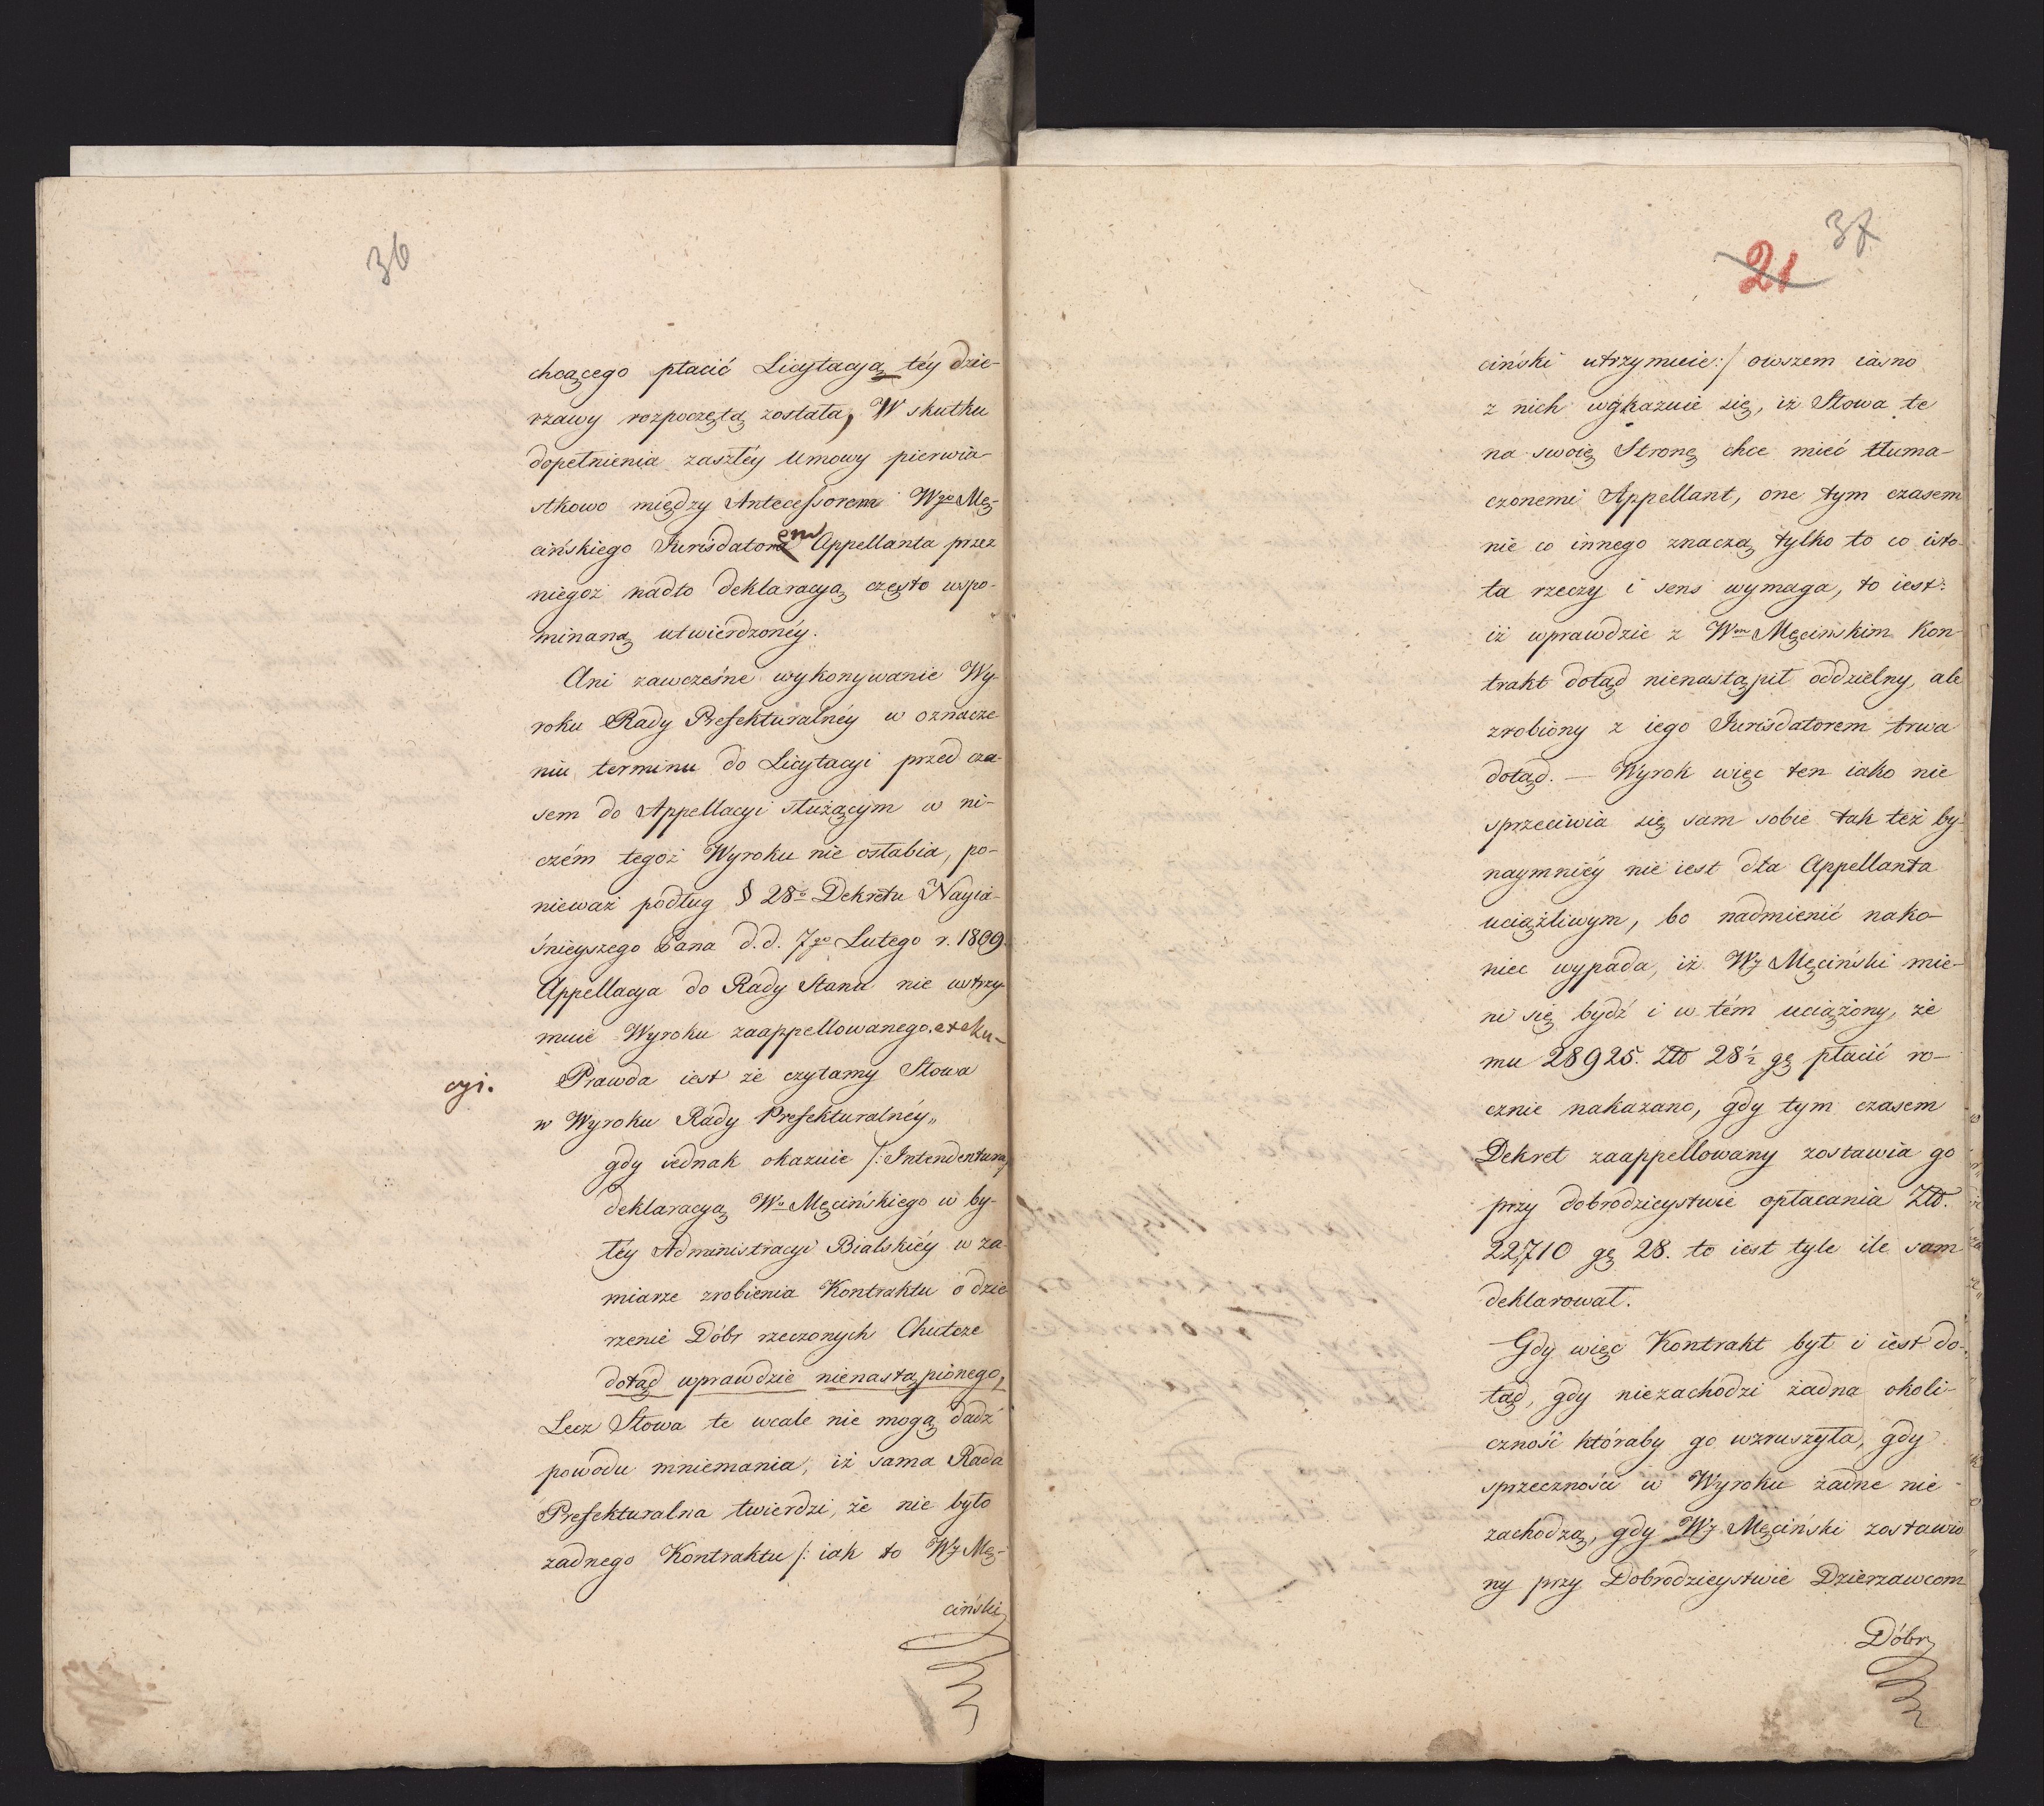 36
chcącego płacić Licytacyą téy dzie-
rzawy rozpoczętą została, W skutku
dopełnienia zaszłéy Umowy pierwia-
stkowo między Antecessorem Wgo Mę-
cińskiego Jurisdatorem Appellanta przez
niegoż nadto deklaracyą często wspo-
minaną utwierdzonéy.
Ani zawcześne wykonywanie Wy-
roku Rady Prefekturalnéy w oznacze-
niu terminu do Licytacyi przed cza-
sem do Appellacyi służącym w ni-
czém tegoż Wyroku nie osłabia, po-
nieważ podług § 28o Dekretu Nayia-
śnieyszego Pana d.d. 7go Lutego r. 1809
Appellacya do Rady Stanu nie wstrzy-
muie Wyroku zaappellowanego. exeku-
cyi.
Prawda iest że czytamy Słowa
w Wyroku Rady Prefekturalnéy„
gdy iednak okazuie /: Intendentura
deklaracyą Wo Męcińskiego w by-
łéy Administracyi Bialskiéy w za-
miarze zrobienia Kontraktu o dzie-
rzenie Dóbr rzeczonych Chutcze
dotąd wprawdzie nienastąpionego,
Lecz Słowa te wcale nie mogą dadź
powodu mniemania, iż sama Rada
Prefekturalna twierdzi, że nie było
żadnego Kontraktu /: iak to WJ Mę-
ciński
37
21
ciński utrzymuie :/ owszem iasno
z nich wykazuie się, iż Słowa te
na swoię Stronę chce mieć tłuma-
czonemi Appellant, one tym czasem
nie co innego znaczą tylko to co isto-
ta rzeczy i sens wymaga, to iest:
iż wprawdzie z Wm Męcinskim Kon-
trakt dotąd nienastąpił oddzielny, ale
zrobiony z iego Jurisdatorem trwa
dotąd. — Wyrok więc ten iako nie
sprzeciwia się sam sobie tak też by-
naymniéy nie iest dla Appellanta
uciążliwym, bo nadmienić nako-
niec wypada, iż WJ Męciński mie-
ni się bydź i w tém uciążony, że
mu 28925. Złł 28½ gę płacić ro-
cznie nakazano, gdy tym czasem
Dekret zaappellowany zostawia go
przy dobrodzieystwie opłacania Złł.
22,710 gę 28. to iest tyle ile sam
deklarował.
Gdy więc Kontrakt był i iest do-
tąd, gdy niezachodzi żadna okoli-
czność któraby go wzruszyła, gdy
sprzeczności w Wyroku żadne nie
zachodzą, gdy WJ Męciński zostawio
ny przy Dobrodzieystwie Dzierzawcom
Dóbr